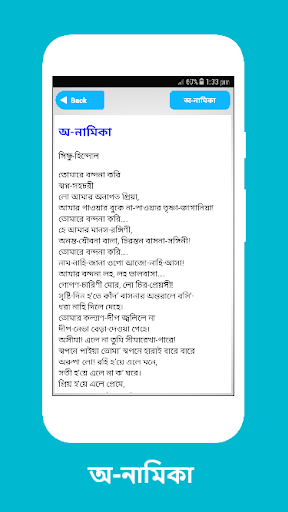 60% 1:33 pm
Back
অ-নামিকা
অ-নামিকা
সিন্ধু-হিন্দোল
তোমারে বন্দনা করি
স্বপ্ন-সহচরী
লো আমার অনাগত প্রিয়া,
আমার পাওয়ার বুকে না-পাওয়ার তৃষ্ণা-জাগানিয়া!
তোমারে বন্দনা করি….
হে আমার মানস-রঙ্গিণী,
অনন্ত-যৌবনা বালা, চিরন্তন বাসনা-সঙ্গিনী!
তোমারে বন্দনা করি….
নাম-নাহি-জানা ওগো আজো-নাহি-আসা!
আমার বন্দনা লহ, লহ ভালবাসা….
গোপণ-চারিণী মোর, লো চির-প্রেয়সী!
সৃষ্টি-দিন হ’তে কাঁদ’ বাসনার অন্তরালে বসি’-
ধরা নাহি দিলে দেহে।
তোমার কল্যাণ-দীপ জ্বলিলে না
দীপ-নেভা বেড়া-দেওয়া গেহে।
অসীমা! এলে না তুমি সীমারেখা-পারে!
স্বপনে পাইয়া তোমা’ স্বপনে হারাই বারে বারে
অরুপা লো! রহি হ’য়ে এলে মনে,
সতী হ’য়ে এলে না ক’ ঘরে।
প্রিয় হ’য়ে এলে প্রেমে,
অ-নামিকা